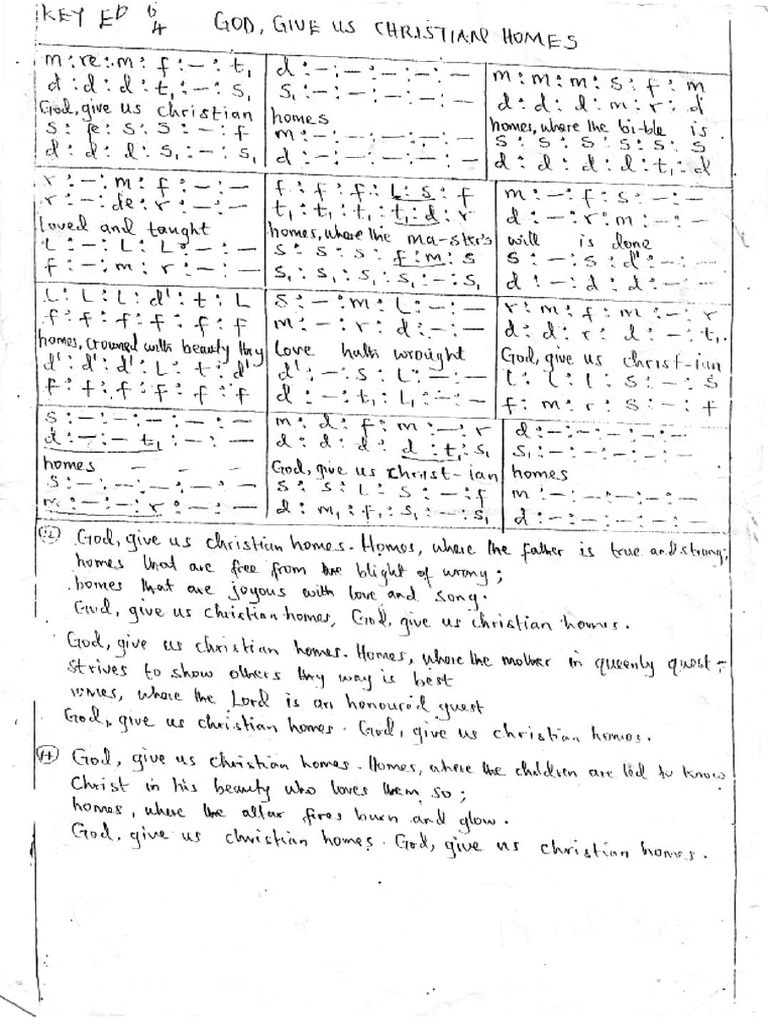 KEY ED 6/4 GOD, GIVE US CHRISTIAN HOMES
m : re : m : f : – : t₁
d : d : d : t₁ : – : s₁
God, give us christian
s : fe : s : s : – : f
d : d : d : s₁ : – : s₁
d : – : – : – : – : –
s₁ : – : – : – : – : –
homes
m : – : – : – : – : –
d : – : – : – : – : –
m : m : m : s : f : m
d : d : d : m : r : d
homes, where the bi-ble is
s : s : s : s : s : s
d : d : d : d : t₁ : d
r : – : m : f : – : –
r : – : de : r : – : –
loved and taught
L : – : L : L : – : –
f : – : m : r : – : –
f : f : f : L : s : f
t₁ : t₁ : t₁ : t₁ : d : r
homes, where the ma-ster's
s : s : s : f : m : s
s₁ : s₁ : s₁ : s₁ : – : s₁
m : – : f : s : – : –
d : – : r : m : – : –
will is done
s : – : s : d' : – : –
d : – : d : d : – : –
L : L : L : d' : t : L
f : f : f : f : f : f
homes, crowned with beauty thy
d' : d' : d' : L : t : d'
f : f : f : f : f : f
s : – : m : L : – : –
m : – : r : d : – : –
Love hath wrought
d' : – : s : L : – : –
d : – : t₁ : L₁ : – : –
r : m : f : m : – : r
d : d : r : d : – : t₁
God, give us christ-ian
l : l : l : s : – : s
f : m : r : s : – : f
s : – : – : – : – : –
d : – : – t₁ : – : –
homes – – –
s : – : – : – : – : –
m : – : – : r : – : –
m : d : f : m : – : r
d : d : d : d : t₁ : s₁
God, give us christ-ian
s : s : L : s : – : f
d : m₁ : f₁ : s₁ : – : s₁
d : – : – : – : – : –
s₁ : – : – : – : – : –
homes
m : – : – : – : – : –
d : – : – : – : – : –
God, give us christian homes. Homes, where the father is true and strong;
homes that are free from the blight of wrong;
homes that are joyous with love and song.
God, give us christian homes, God, give us christian homes.
God, give us christian homes. Homes, where the mother in queenly quest -
strives to show others thy way is best
homes, where the Lord is an honoured guest
God, give us christian homes. God, give us christian homes.
God, give us christian homes. Homes, where the children are led to know
Christ in his beauty who loves them so;
homes, where the altar fires burn and glow.
God, give us christian homes. God, give us christian homes.